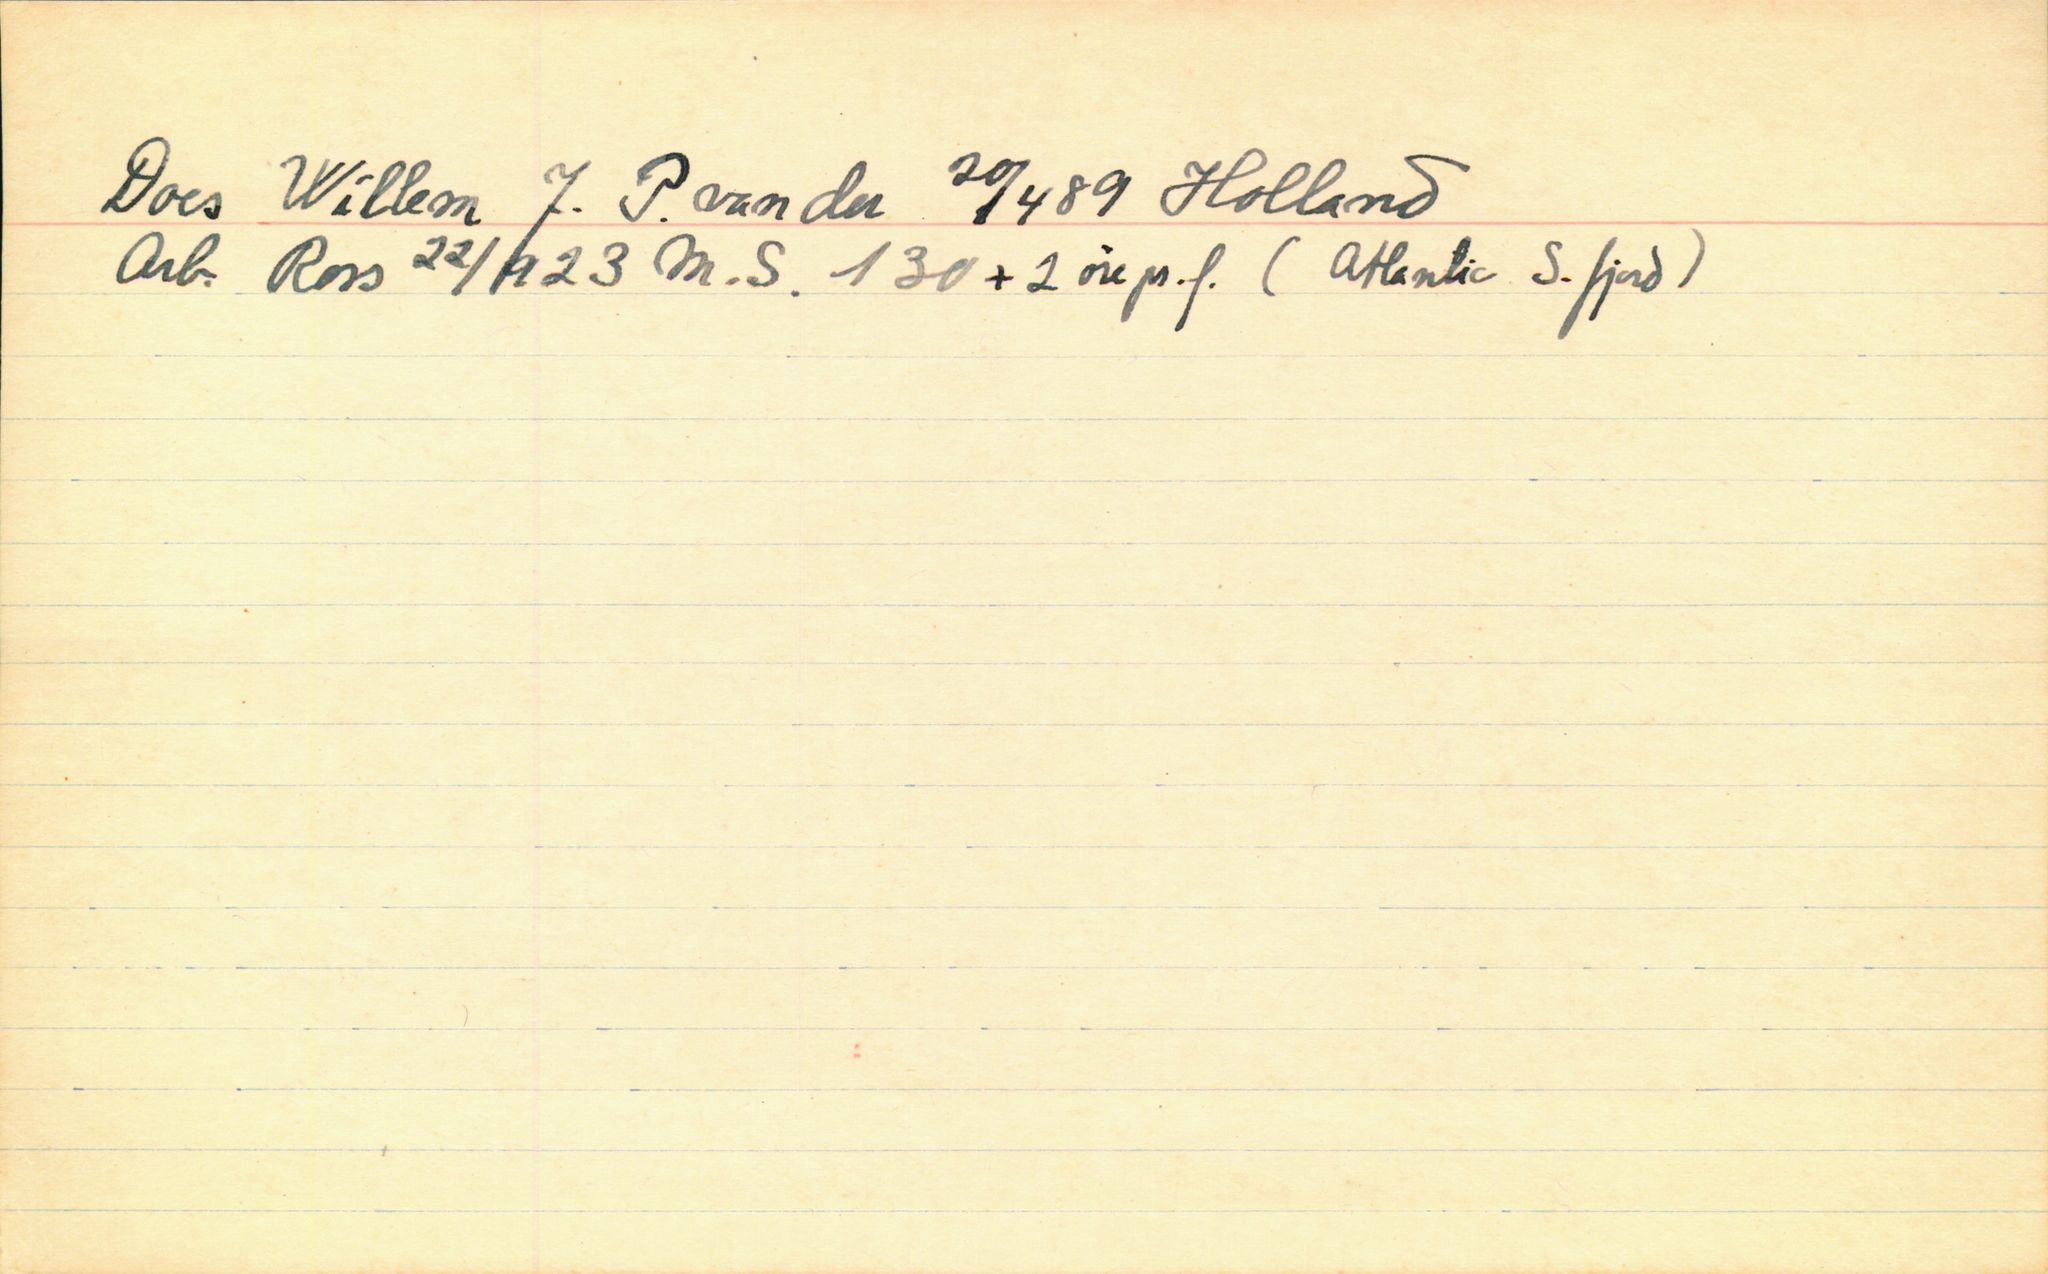 Does Willem J. P. van der 20/489 Holland
Arb. Ross 22/923 M.S. 130 + 2 öre pr. f. ( Atlantic S. fjord )